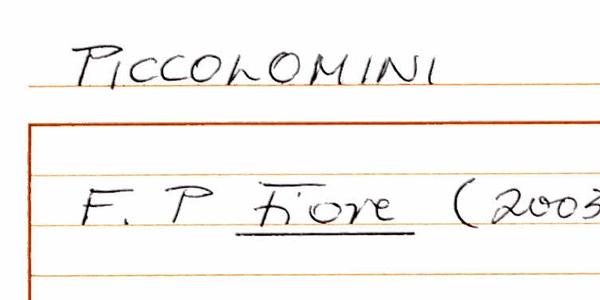 PICCOLOMINI
F. P Fiore (2003